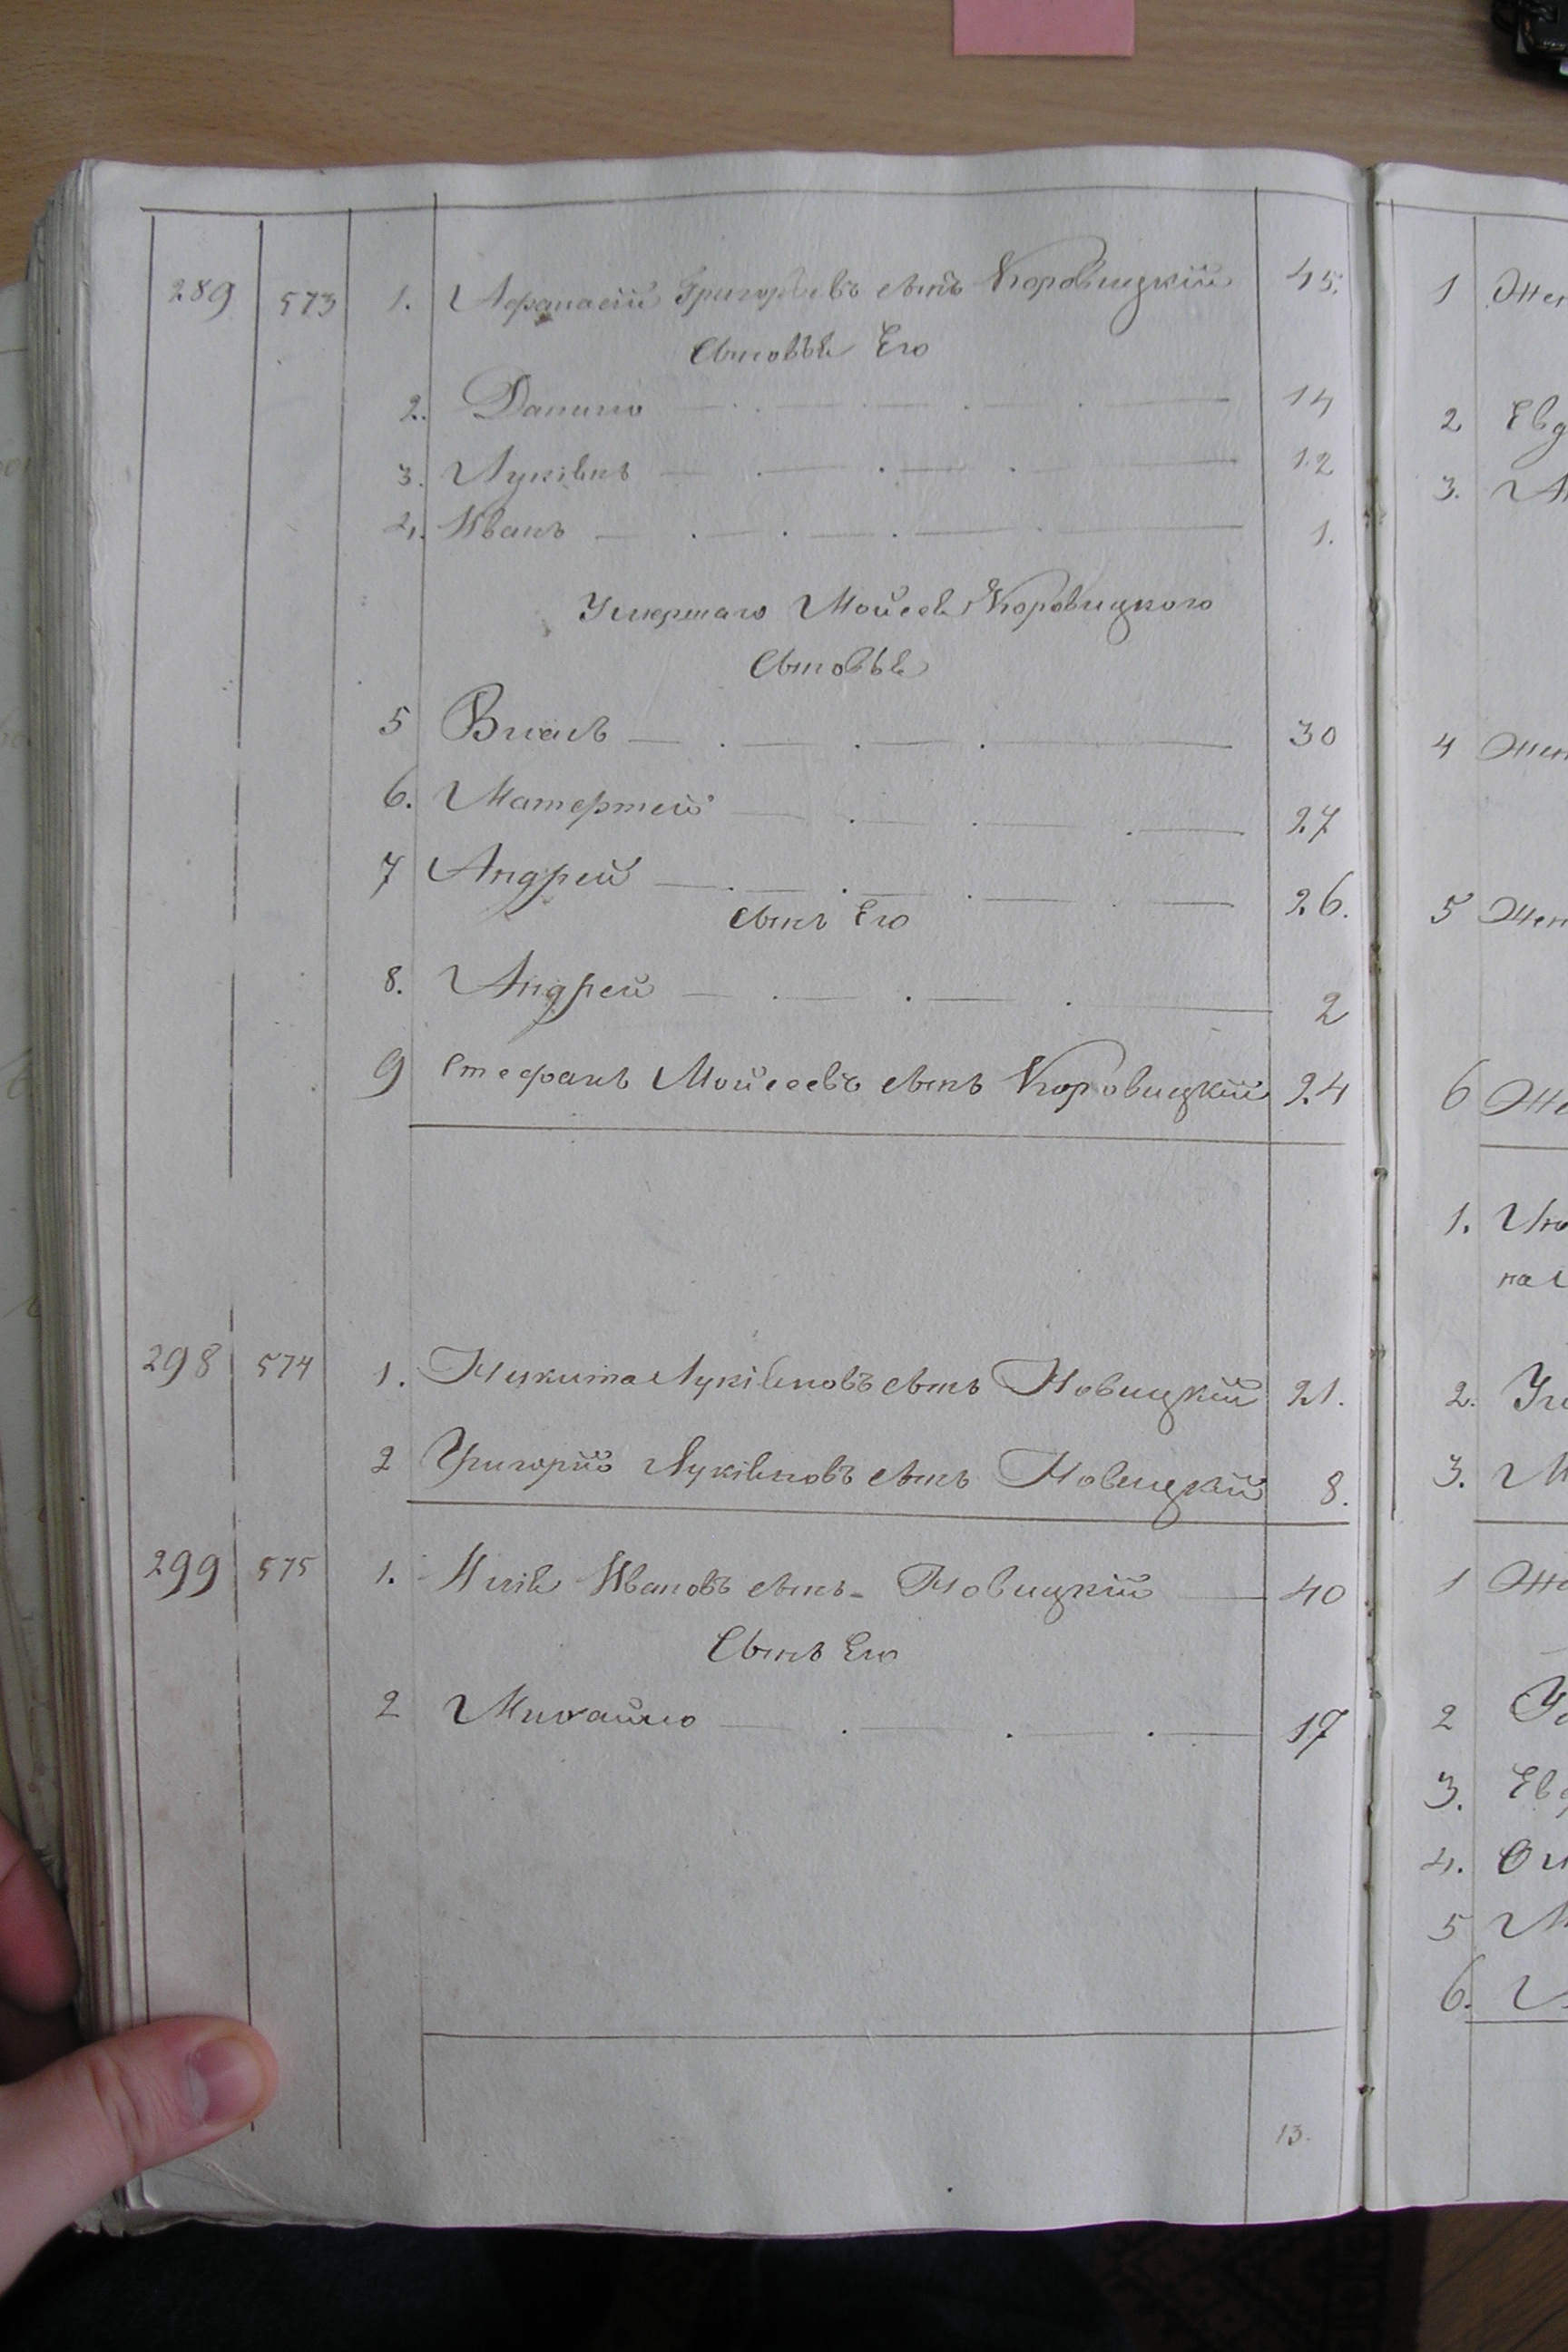 289 573 1. Афанасій Григорьевъ сынъ Коровицкій 45.
сыновья Его
2. Данило 14
3. Лукіянъ 12
4. Иванъ 1.
Умершаго Мойсея Коровицкого
сыновья
5 Власъ 30
6. Матвей 27
7 Андрей 26.
сынъ Его
8. Андрей 2
9 Стефанъ Мойсеевъ сынъ Коровицкій 24
298 574 1. Никита Лукіяновъ сынъ Новицкій 21.
2 Григорій Лукіяновъ сынъ Новицкій 8.
299 575 1. Илія Ивановъ сынъ Новицкій 40
Сынъ Его
2 Михайло 17
13.
1
2
3.
4
5
6
1.
2.
3.
1
2
3.
4.
5
6.